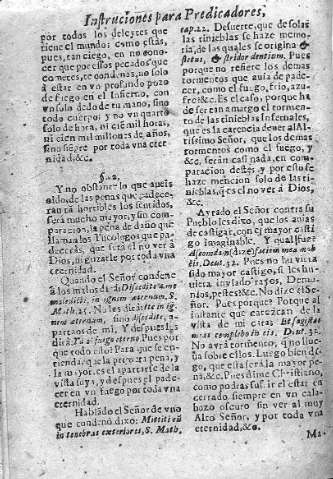 Instruciones para Predicadores,
por todos los deleytes que
tiene el mundo: como estás,
pues, tan ciego, en no cono-
cer que por essos pecados que
cometes, te condenas, no solo
à estar en vn profundo pozo
de fuego en el Infierno, con
vn solo dedo de tu mano, sino
todo cuerpo; y no vn quarto
solo de hora, ni cien mil horas,
ni cien mil millones de años,
sino siempre por toda vna eter
nidad, &c.
§. 2.
Y no obstante lo que aueis
oìdo, de las penas que padece-
ràn tã horribles los sentidos,
serà mucho mayor, y sin com-
paracion, la pena de daño que
llaman los Teologos que pa-
deceràs, que serà el no ver à
Dios, ni gozarle por toda vna
eternidad.
Quando el Señor condene
à los malos dirà: Discedite à me
maledicti, in ignem æternum, S.
Math. 25. No les dirà: Ite in ig-
nem æternum, sino discedite, a-
partaos de mi, Y despues les
dirà al fuego eterno. Pues por
que todo esto? Para que se en-
tienda, que la primera pena, y
la mayor, es el apartarse de la
vista suya, y despues el pade-
cer en vn fuego por toda vna
eternidad.
Hablãdo el Señor de vno
que condenò dixo: Mittite eũ
in tenebras exteriores, S. Math.
cap. 22. De suerte, que de solas
las tinieblas se haze memo-
ria, de las quales se origina el
fletus, & stridor dentium. Pues
porque no refiere los demas
tormentos que auia de pade-
cer, como el fuego, frio, azu-
fre, &c. Es el caso; porque ha
de ser tan amargo el tormen-
to de las tinieblas infernales,
que es la carencia de ver al Al-
tissimo Señor, que los demas
tormentos como el fuego, y
&c. seràn casi nada, en com-
paracion destas; y por esso se
haze mencion solo de las ti-
nieblas, q̃ es el no ver à Dios,
&c.
Ayrado el Señor contra su
Pueblo les dixo, que los auia
de castigar, con el mayor casti
go imaginable. Y qual fue?
Abscondam faciem meam ab
eis. Deut. 32. Pues no les viera
sido mayor castigo, si les hu-
viera invìado rayos, Demo-
nios, pestes &c. No dize el Se-
ñor. Pues porquè? Porque al
instante que carezcan de la
vista de mi cara: Et sagittas
meas complebo in eis. Deut. 32.
No avrà tormento, q̃ no llue-
va sobre ellos. Luego bien di-
go, que esta serà la mayor pe-
na, &c. Pues dime Christiano,
como podràs sufrir el estar en
cerrado siempre en vn cala-
bozo oscuro sin ver al muy
Alto Señor, y por toda vna
eternidad, &c.
Ma-